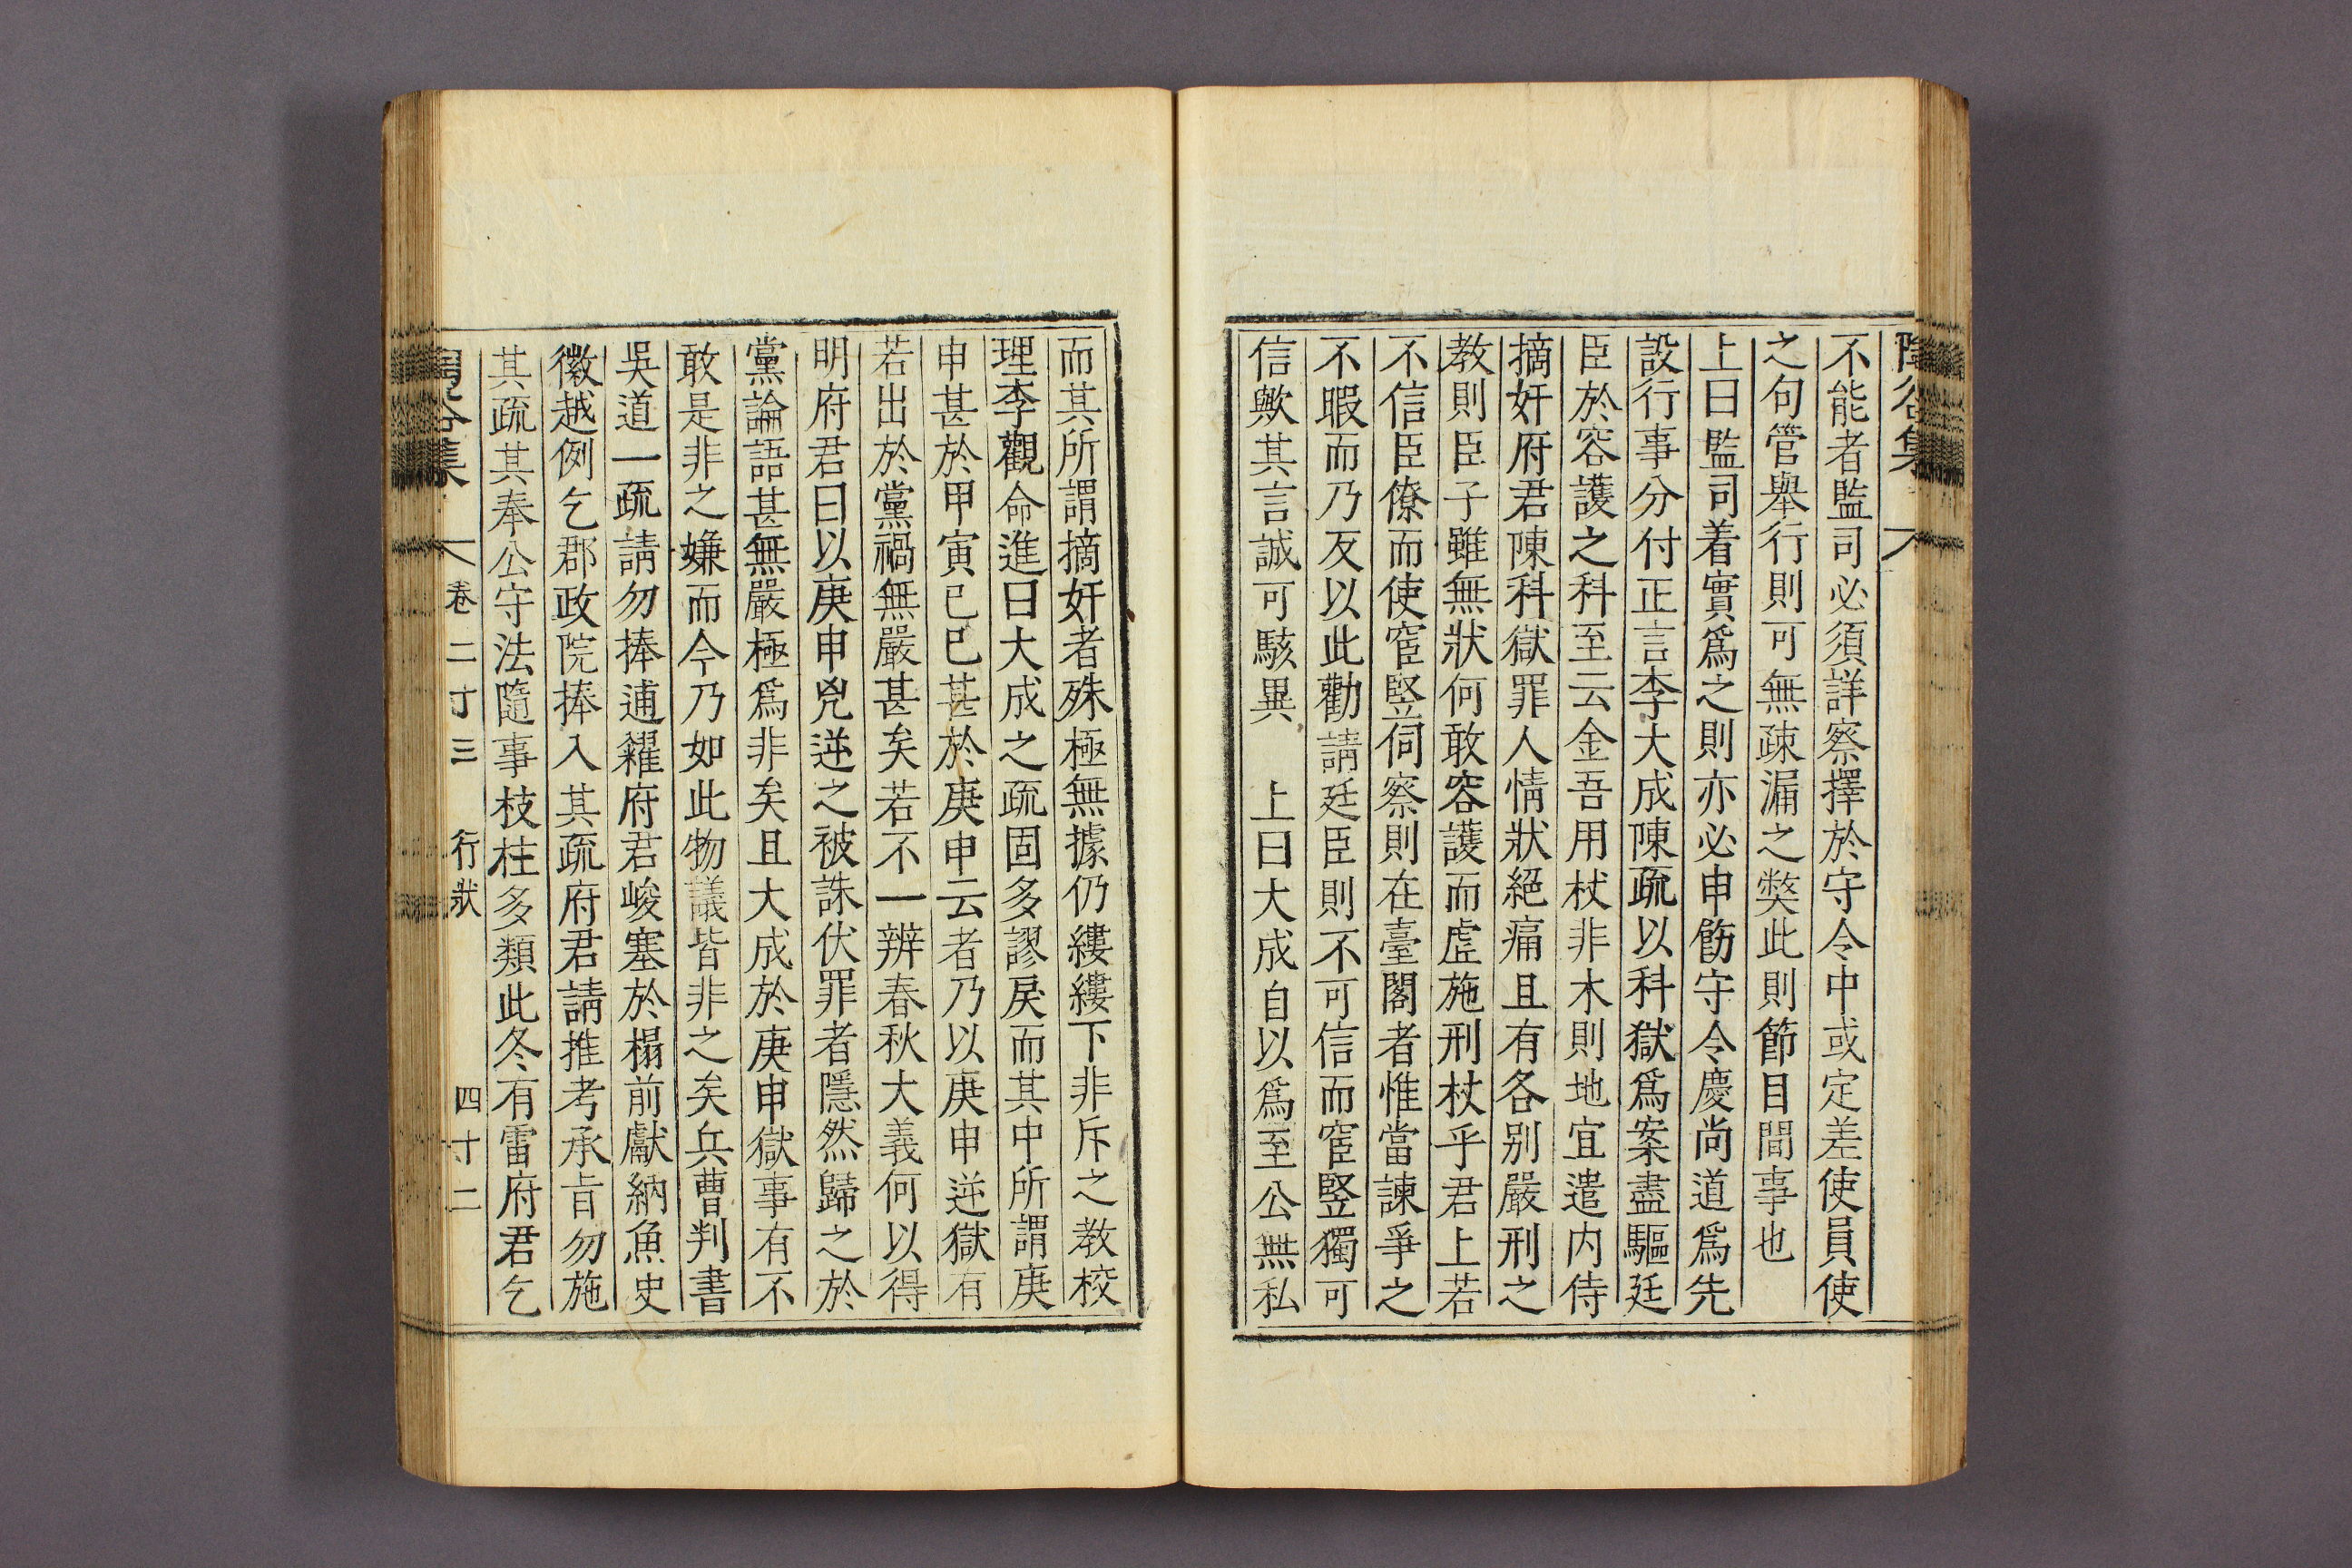 陶谷集
不能者監司必須詳察擇於守令中或定差使員使
之句管舉行則可無疎漏之弊此則節目間事也
上曰監司着實爲之則亦必申飭守令慶尚道爲先
設行事分付正言李大成陳疏以科獄爲案盡驅廷
臣於容護之科至云金吾用杖非木則地宜遣内侍
摘奸府君陳科獄罪人情狀絕痛且有各别嚴刑之
教則臣子雖無狀何敢容護而虛施刑杖乎君上若
不信臣僚而使宦竪伺察則在臺閣者惟當諫爭之
不暇而乃反以此勸請廷臣則不可信而宦竪獨可
信歟其言誠可駭異　上曰大成自以爲至公無私
而其所謂摘奸者殊極無據仍縷縷下非斥之教校
理李觀命進曰大成之疏固多謬戾而其中所謂庚
申甚於甲寅己巳甚於庚申云者乃以庚申逆獄有
若出於黨禍無嚴甚矣若不一辨春秋大義何以得
明府君曰以庚申兇逆之被誅伏罪者隱然歸之於
黨論語甚無嚴極爲非矣且大成於庚申獄事有不
敢是非之嫌而今乃如此物議皆非之矣兵曹判書
吳道一疏請勿捧逋糴府君峻塞於榻前獻納魚史
徽越例乞郡政院捧入其疏府君請推考承旨勿施
其疏其奉公守法隨事枝柱多類此冬有雷府君乞
陶谷集　卷二十三　行狀　四十二